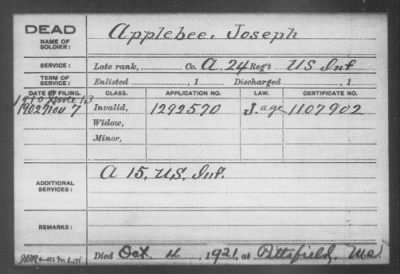 DEAD
NAME OF SOLDIER: Applebee, Joseph
SERVICE: Late rank, Co. A. 24 Regt US Inf
TERM OF SERVICE: Enlisted , 1 Discharged , 1
DATE OF FILING. CLASS. APPLICATION NO. LAW. CERTIFICATE NO.
1902 Nov 7 Invalid, 1292570 J. age 1107902
Widow,
Minor,
ADDITIONAL SERVICES: A 15, U.S. Inf.
REMARKS:
Died Oct 4, 1921, at Pittsfield, Me.